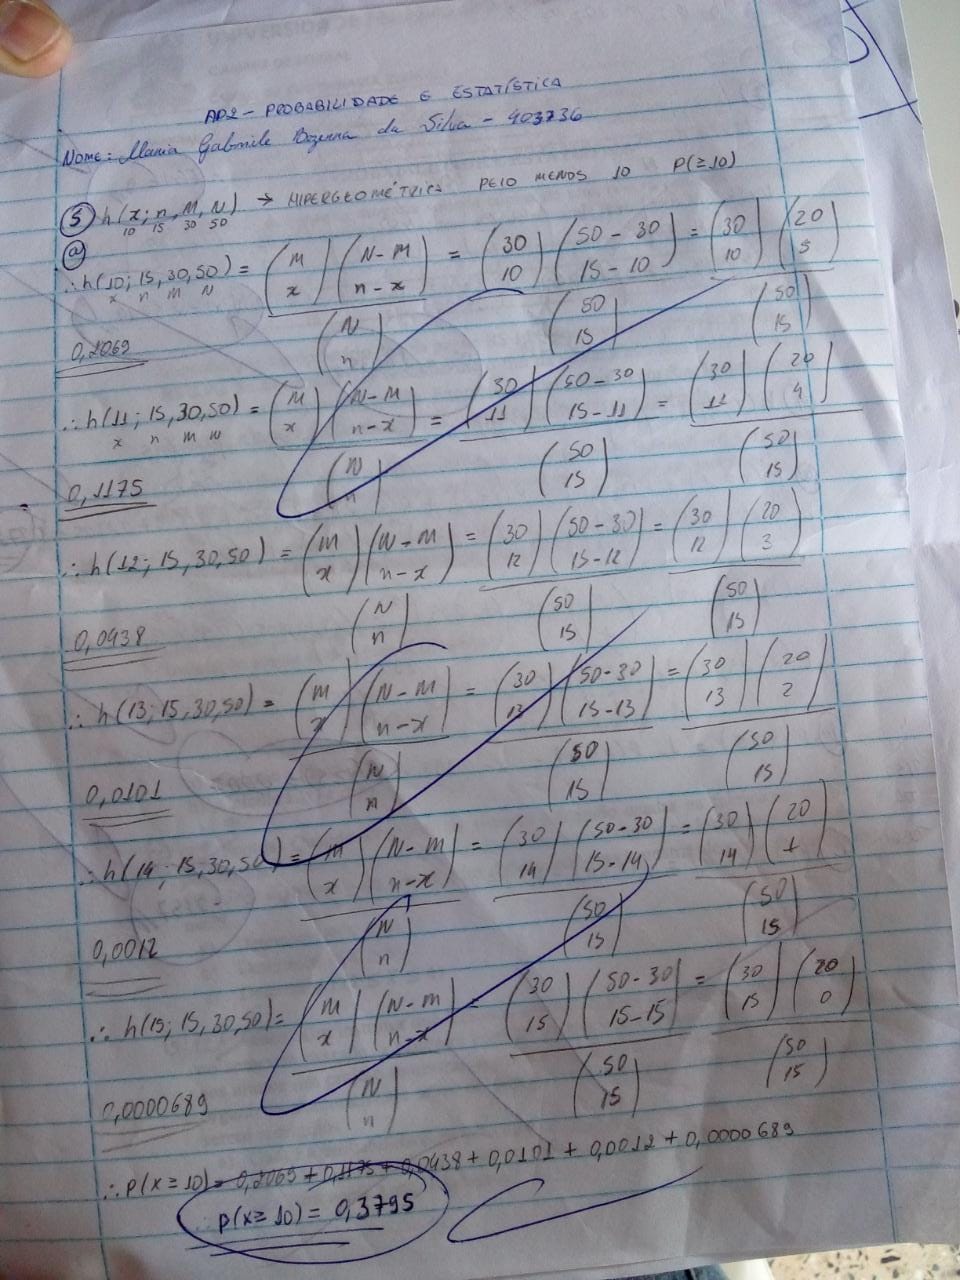 AP2 - PROBABILIDADE E ESTATÍSTICA
Nome: Maria Gabriele Bezerra da Silva - 403736
5 h(x; n, M, N) → HIPERGEOMÉTRICA PELO MENOS 10 P(≥10)
10 15 30 50
a
∴ h(10; 15, 30, 50) = (M x)(N-M n-x) = (30 10)(50-30 15-10) = (30 10)(20 5)
x n M N
(N n) (50 15) (50 15)
0,2069
∴ h(11; 15, 30, 50) = (M x)(N-M n-x) = (30 11)(50-30 15-11) = (30 11)(20 4)
x n M N
(N n) (50 15) (50 15)
0,1175
∴ h(12; 15, 30, 50) = (M x)(N-M n-x) = (30 12)(50-30 15-12) = (30 12)(20 3)
(N n) (50 15) (50 15)
0,0438
∴ h(13; 15, 30, 50) = (M x)(N-M n-x) = (30 13)(50-30 15-13) = (30 13)(20 2)
(N n) (50 15) (50 15)
0,0101
∴ h(14; 15, 30, 50) = (M x)(N-M n-x) = (30 14)(50-30 15-14) = (30 14)(20 1)
(N n) (50 15) (50 15)
0,0012
∴ h(15; 15, 30, 50) = (M x)(N-M n-x) = (30 15)(50-30 15-15) = (30 15)(20 0)
(N n) (50 15) (50 15)
0,0000689
∴ P(X≥10) = 0,2069 + 0,1175 + 0,0438 + 0,0101 + 0,0012 + 0,0000689
P(X≥10) = 0,3795